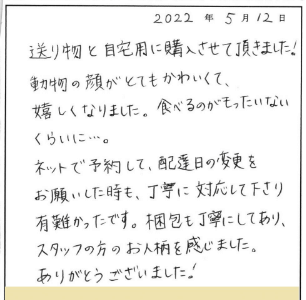 2022 年 5 月 12 日
送り物と自宅用に購入させて頂きました!
動物の顔がとてもかわいくて、
嬉しくなりました。食べるのがもったいない
くらいに…。
ネットで予約して、配達日の変更を
お願いした時も、丁寧に対応して下さり
有難かったです。梱包も丁寧にしてあり、
スタッフの方のお人柄を感じました。
ありがとうございました!